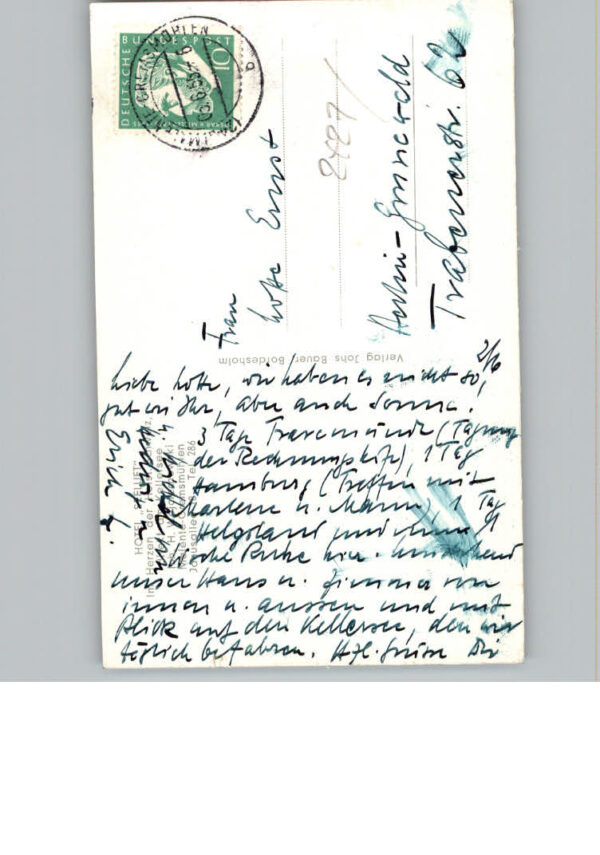 DEUTSCHE BUNDESPOST
10
MALENTE-GREMSMÜHLEN
2427
Frau
Lotte Ernst
Berlin-Grunewald
Trabenerstr. 62
Verlag Johs Bauer Bordesholm
HOTEL
Im Herzen der
Malente-Gremsmühlen
Tel. 286
2/6
Liebe Lotte, wir haben es nicht so
gut wie Ihr, aber auch Sonne.
3 Tage Travemünde (Tagung
der Rechnungshöfe), 1 Tag
Hamburg (Treffen mit
Marlene u. Mann), 1 Tag
Helgoland und nun 1
Woche Ruhe hier. Umstehend
unser Haus u. Zimmer von
innen u. aussen und mit
Blick auf den Kellersee, den wir
täglich befahren. Hzl. Grüsse Dir